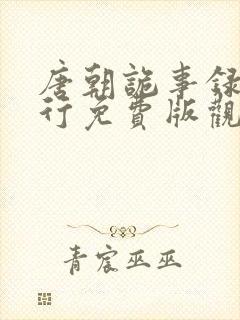 唐朝詭事錄
行免費版觀
青宸巫巫